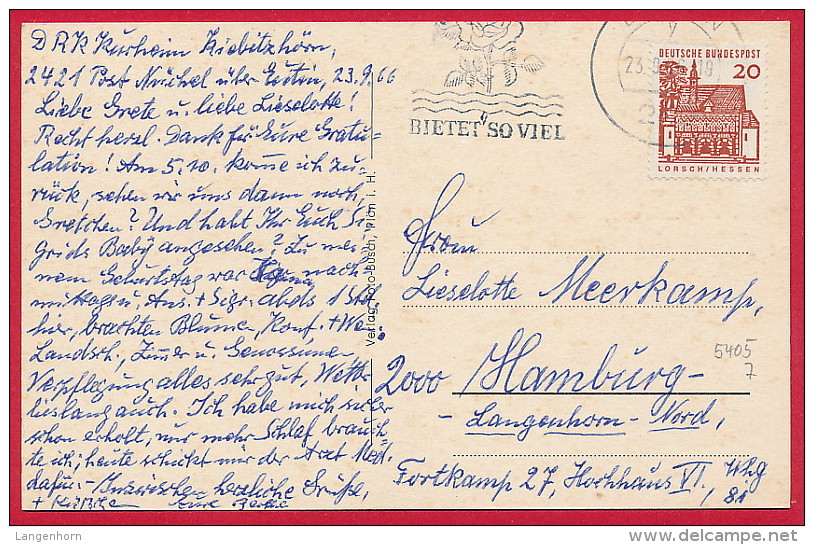 DRK Kurheim Kiebitzhörn,
2421 Post Nüchel über Eutin, 23.9.66
Liebe Grete u. liebe Lieselotte!
Recht herzl. Dank für Eure Gratu-
lation! Am 5.10. komme ich zu-
rück, sehen wir uns dann noch,
Gretchen? Und habt Ihr Euch Si-
grids Baby angesehen? Zu mei-
nem Geburtstag war nach-
mittags u. Ans. + Sigr. abds 1 Std.
hier, brachten Blumen, Konf. +
Landsch., Zimmer u. Genossinnen,
Verpflegung alles sehr gut, Wetter
bislang auch. Ich habe mich sicher
schon erholt, nur mehr Schlaf brauch-
te ich; heute schickt mir der Arzt Med.
dafür. - Inzwischen herzliche Grüße,
Eure
Verlag Foto-Busch, Plön i. H.
BIETET SO VIEL
23.9.
DEUTSCHE BUNDESPOST
20
LORSCH/HESSEN
Frau
Lieselotte Meerkamp,
5405
7
2000 Hamburg-
- Langenhorn-Nord,
Fortkamp 27, Hochhaus VI, Whg
81
Langenhorn
delcampe.net